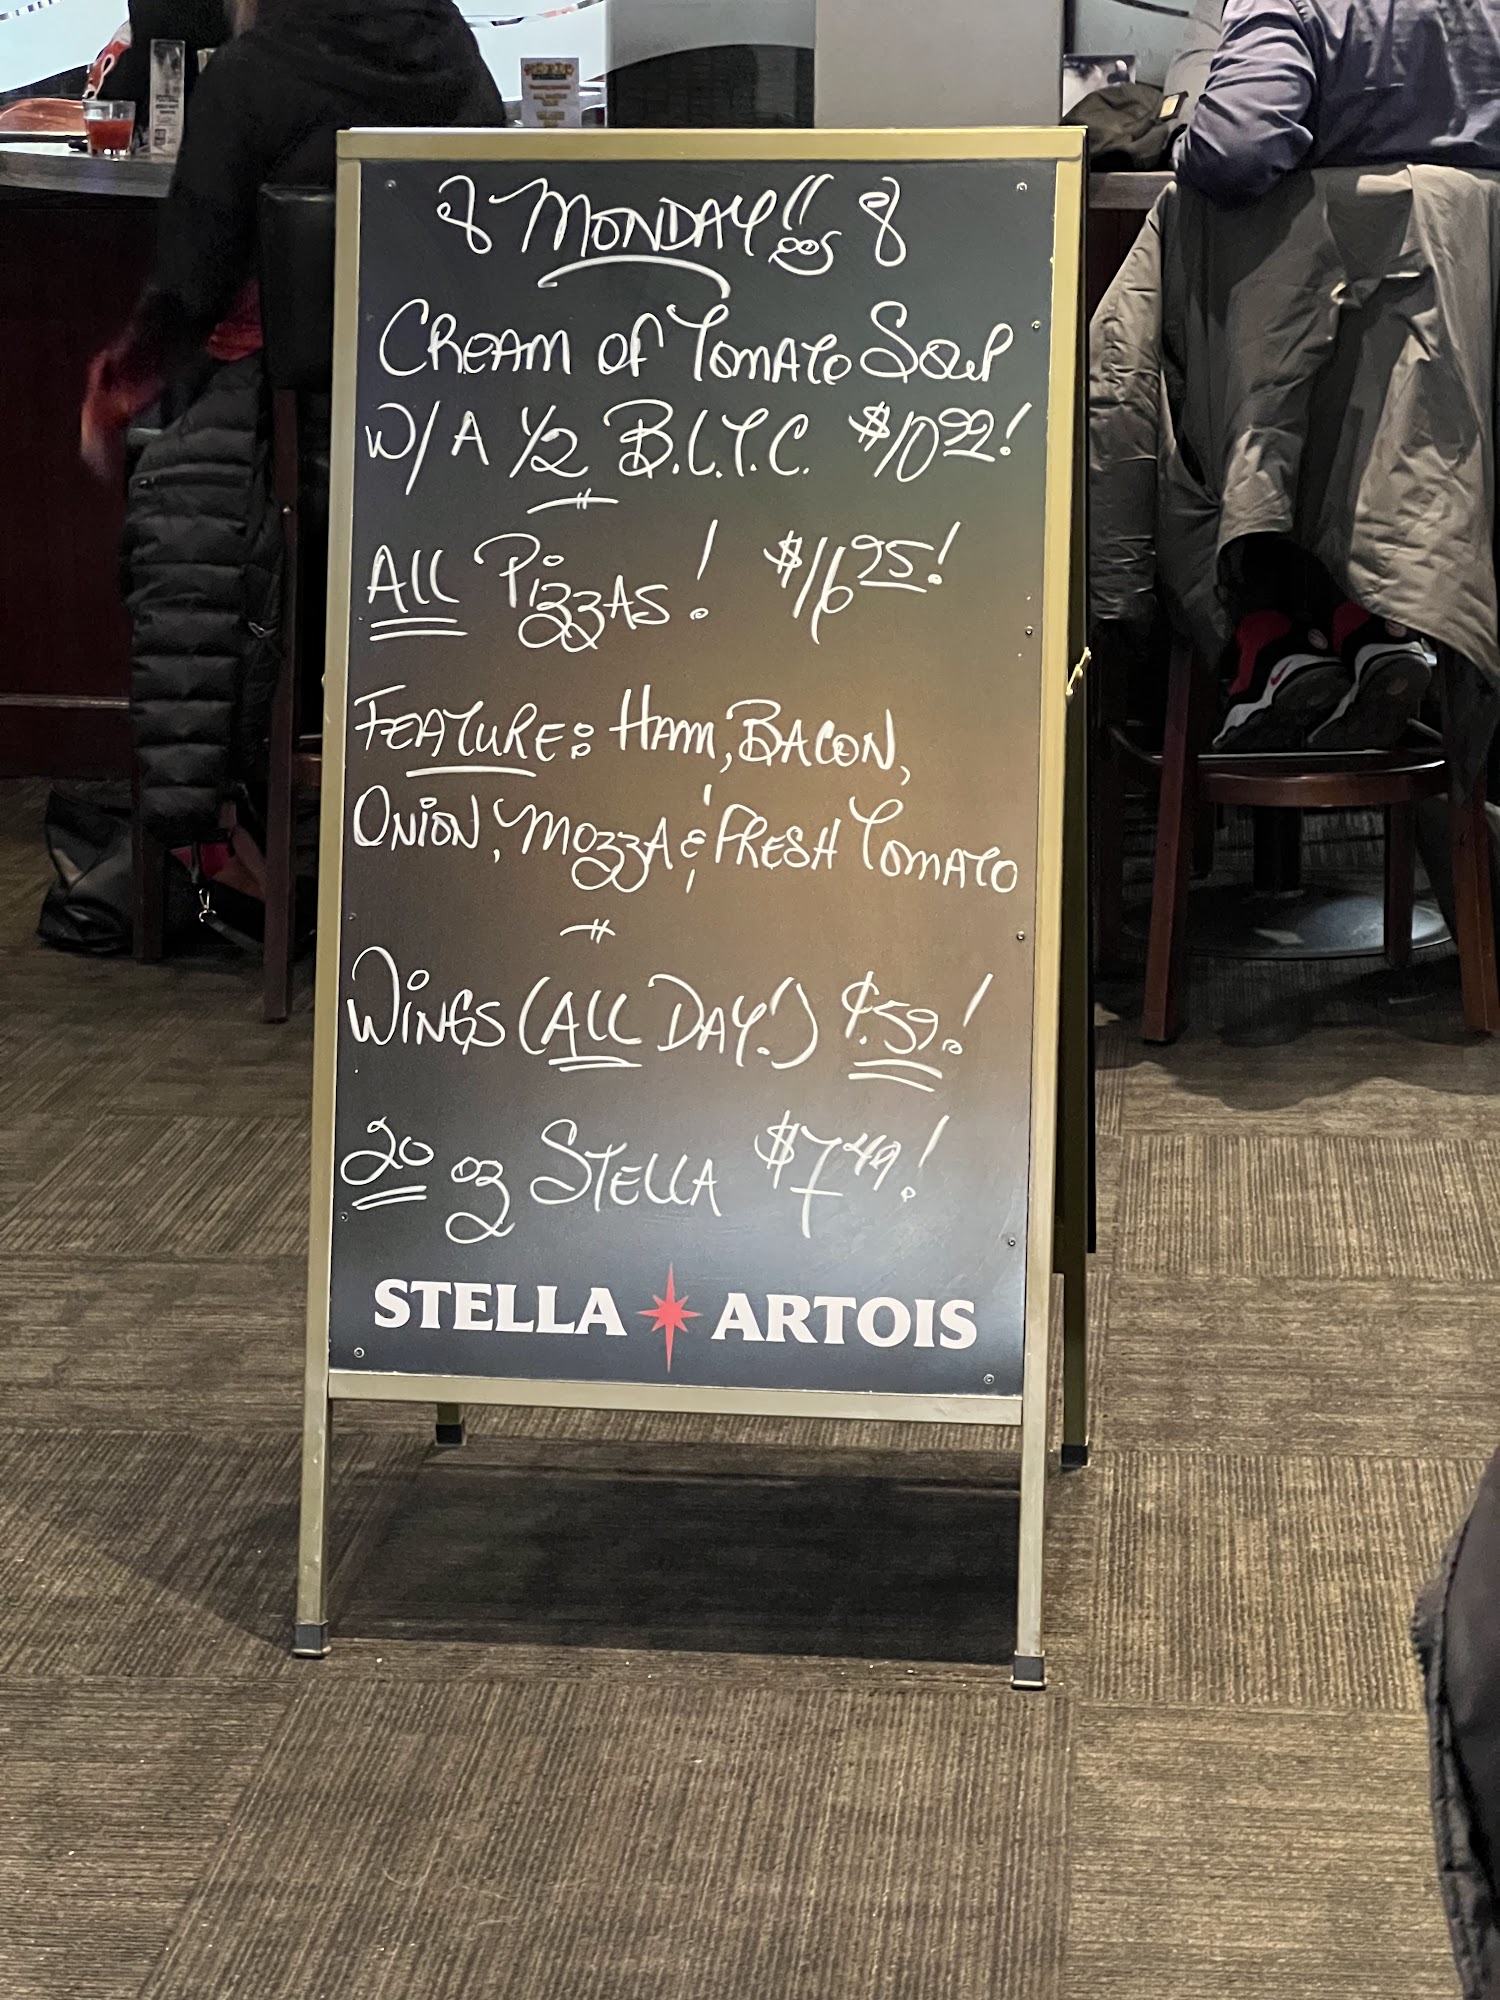 MONDAY!!
CREAM OF TOMATO SOUP
W/A 1/2 B.L.T.C. $10.99!
ALL PIZZAS! $16.95!
FEATURE: HAM, BACON,
ONION, MOZZA & FRESH TOMATO
WINGS (ALL DAY!) $.59!
20 oz STELLA $7.49!
STELLA ARTOIS